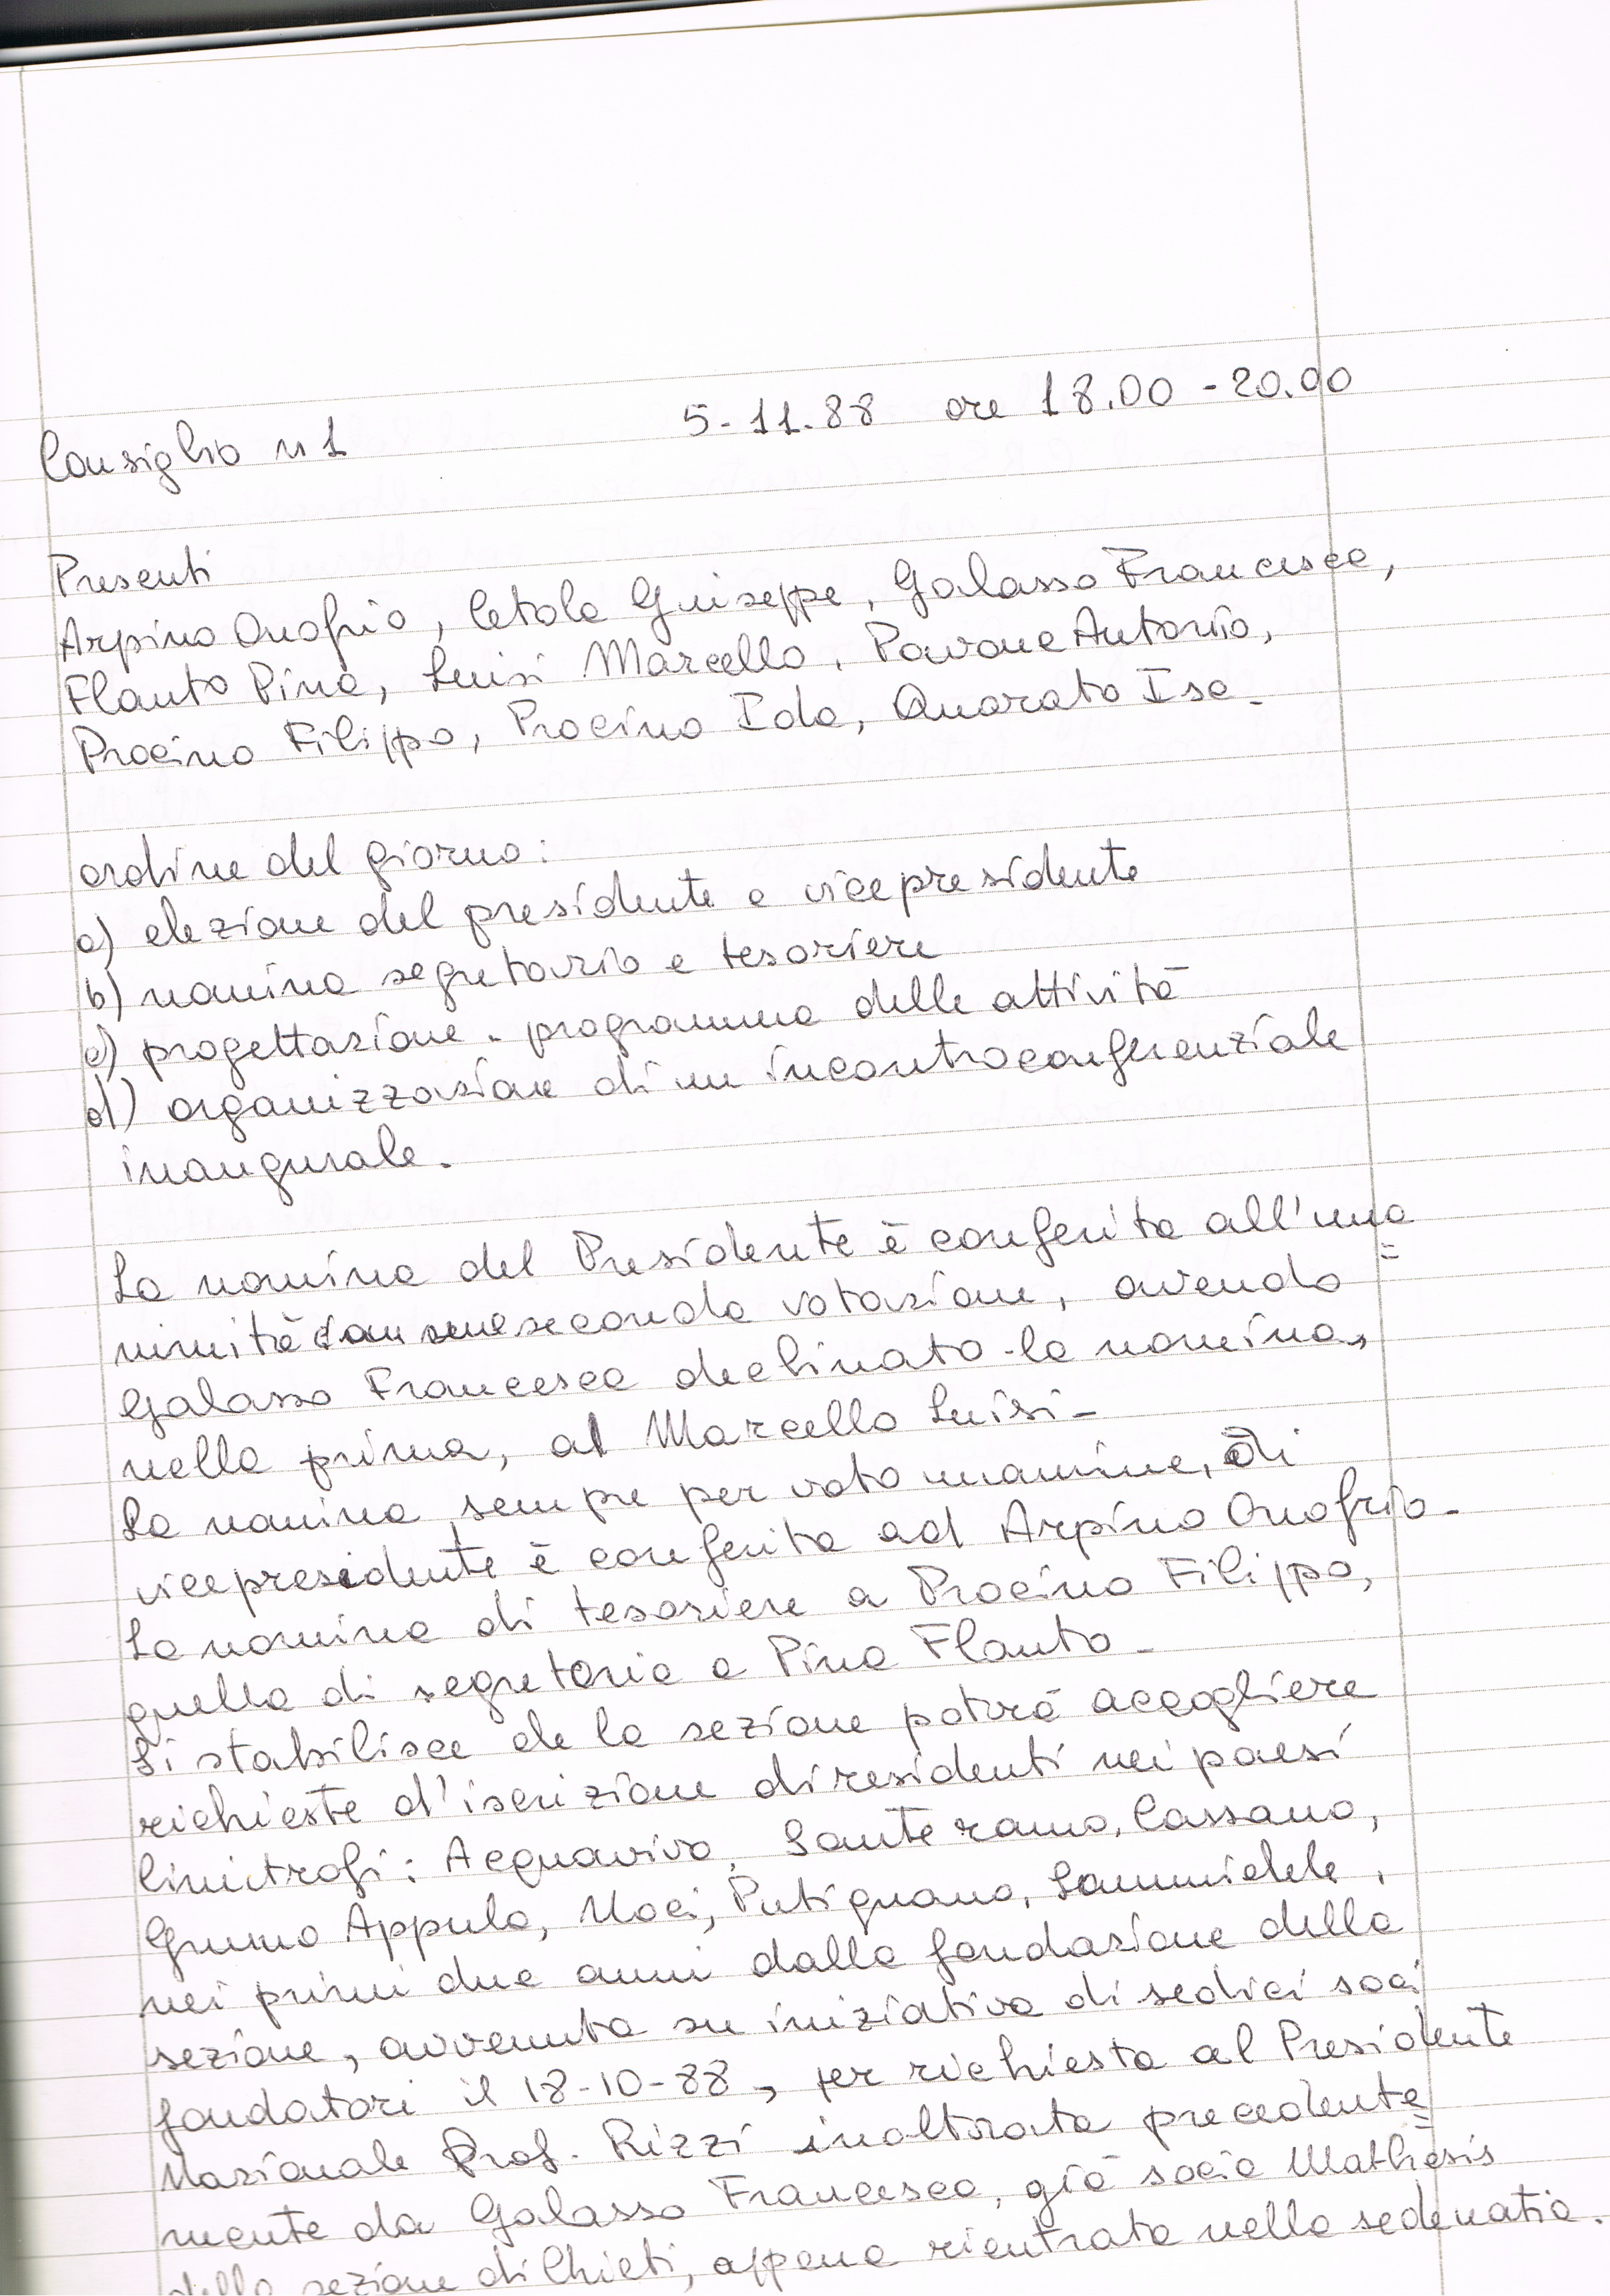 Consiglio n 1 5-11.88 ore 18.00-20.00
Presenti
Arpino Onofrio, Cetola Giuseppe, Galasso Francesca,
Flauto Pina, Luisi Marcello, Pavone Antonio,
Procino Filippo, Procino Ida, Quarato Isa.
ordine del giorno:
a) elezione del presidente e vicepresidente
b) nomina segretario e tesoriere
c) progettazione - programma delle attività
d) organizzazione di un incontro conferenziale
inaugurale.
La nomina del Presidente è conferita all'una=
nimità seconda votazione, avendo
Galasso Francesca declinato la nomina,
nella prima, a Marcello Luisi-
La nomina, sempre per voto unanime, di
vicepresidente è conferita ad Arpino Onofrio-
La nomina di tesoriere a Procino Filippo,
quella di segretaria a Pina Flauto-
Si stabilisce che la sezione potrà accogliere
richieste d'iscrizione di residenti nei paesi
limitrofi: Acquaviva, Santeramo, Cassano,
Grumo Appula, Noci, Putignano, Sammichele,
nei primi due anni dalla fondazione della
sezione, avvenuta su iniziativa di sedici soci
fondatori il 18-10-88, per richiesta al Presidente
Nazionale Prof. Rizzi inoltrata precedente=
mente da Galasso Francesca, già socia Mathesis
della sezione di Chieti, appena rientrata nella sede natia.